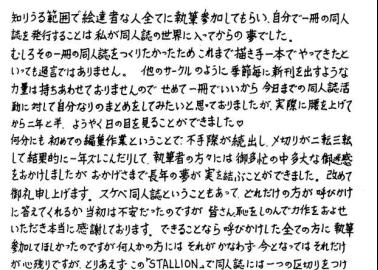 知りうる範囲で絵達者な人全てに執筆参加してもらい、自分で一冊の同人
誌を発行することは私が同人誌の世界に入ってからの夢でした。
むしろその一冊の同人誌をつくりたかったためこれまで描き手一本でやってきたと
いっても過言ではありません。他のサークルのように季節毎に新刊を出すような
力量は持ちあわせておりませんので せめて一冊でいいから今日までの同人誌活
動に対して自分なりのまとめをしてみたいと思っておりましたが、実際に腰を上げて
から二年と半、ようやく日の目を見ることができました♡
何分にも初めての編集作業ということで不手際が続出し、〆切りが二転三転
して結果的に一年ズレこんだりして、執筆者の方々には御多忙の中多大な御迷惑
をおかけしましたが おかげさまで長年の夢が実を結ぶことができました。改めて
御礼申し上げます。スケベ同人誌ということもあって、どれだけの方が呼びかけ
に答えてくれるか当初は不安だったのですが 皆さん恥をしのんでか力作をおよせ
いただき本当に感謝しております。できることなら呼びかけした全ての方に執筆
参加してほしかったのですが何人かの方には それが かなわず 今となってはそれだけ
が心残りですが、とりあえず この"STALLION"で同人誌には一つの区切りをつけ